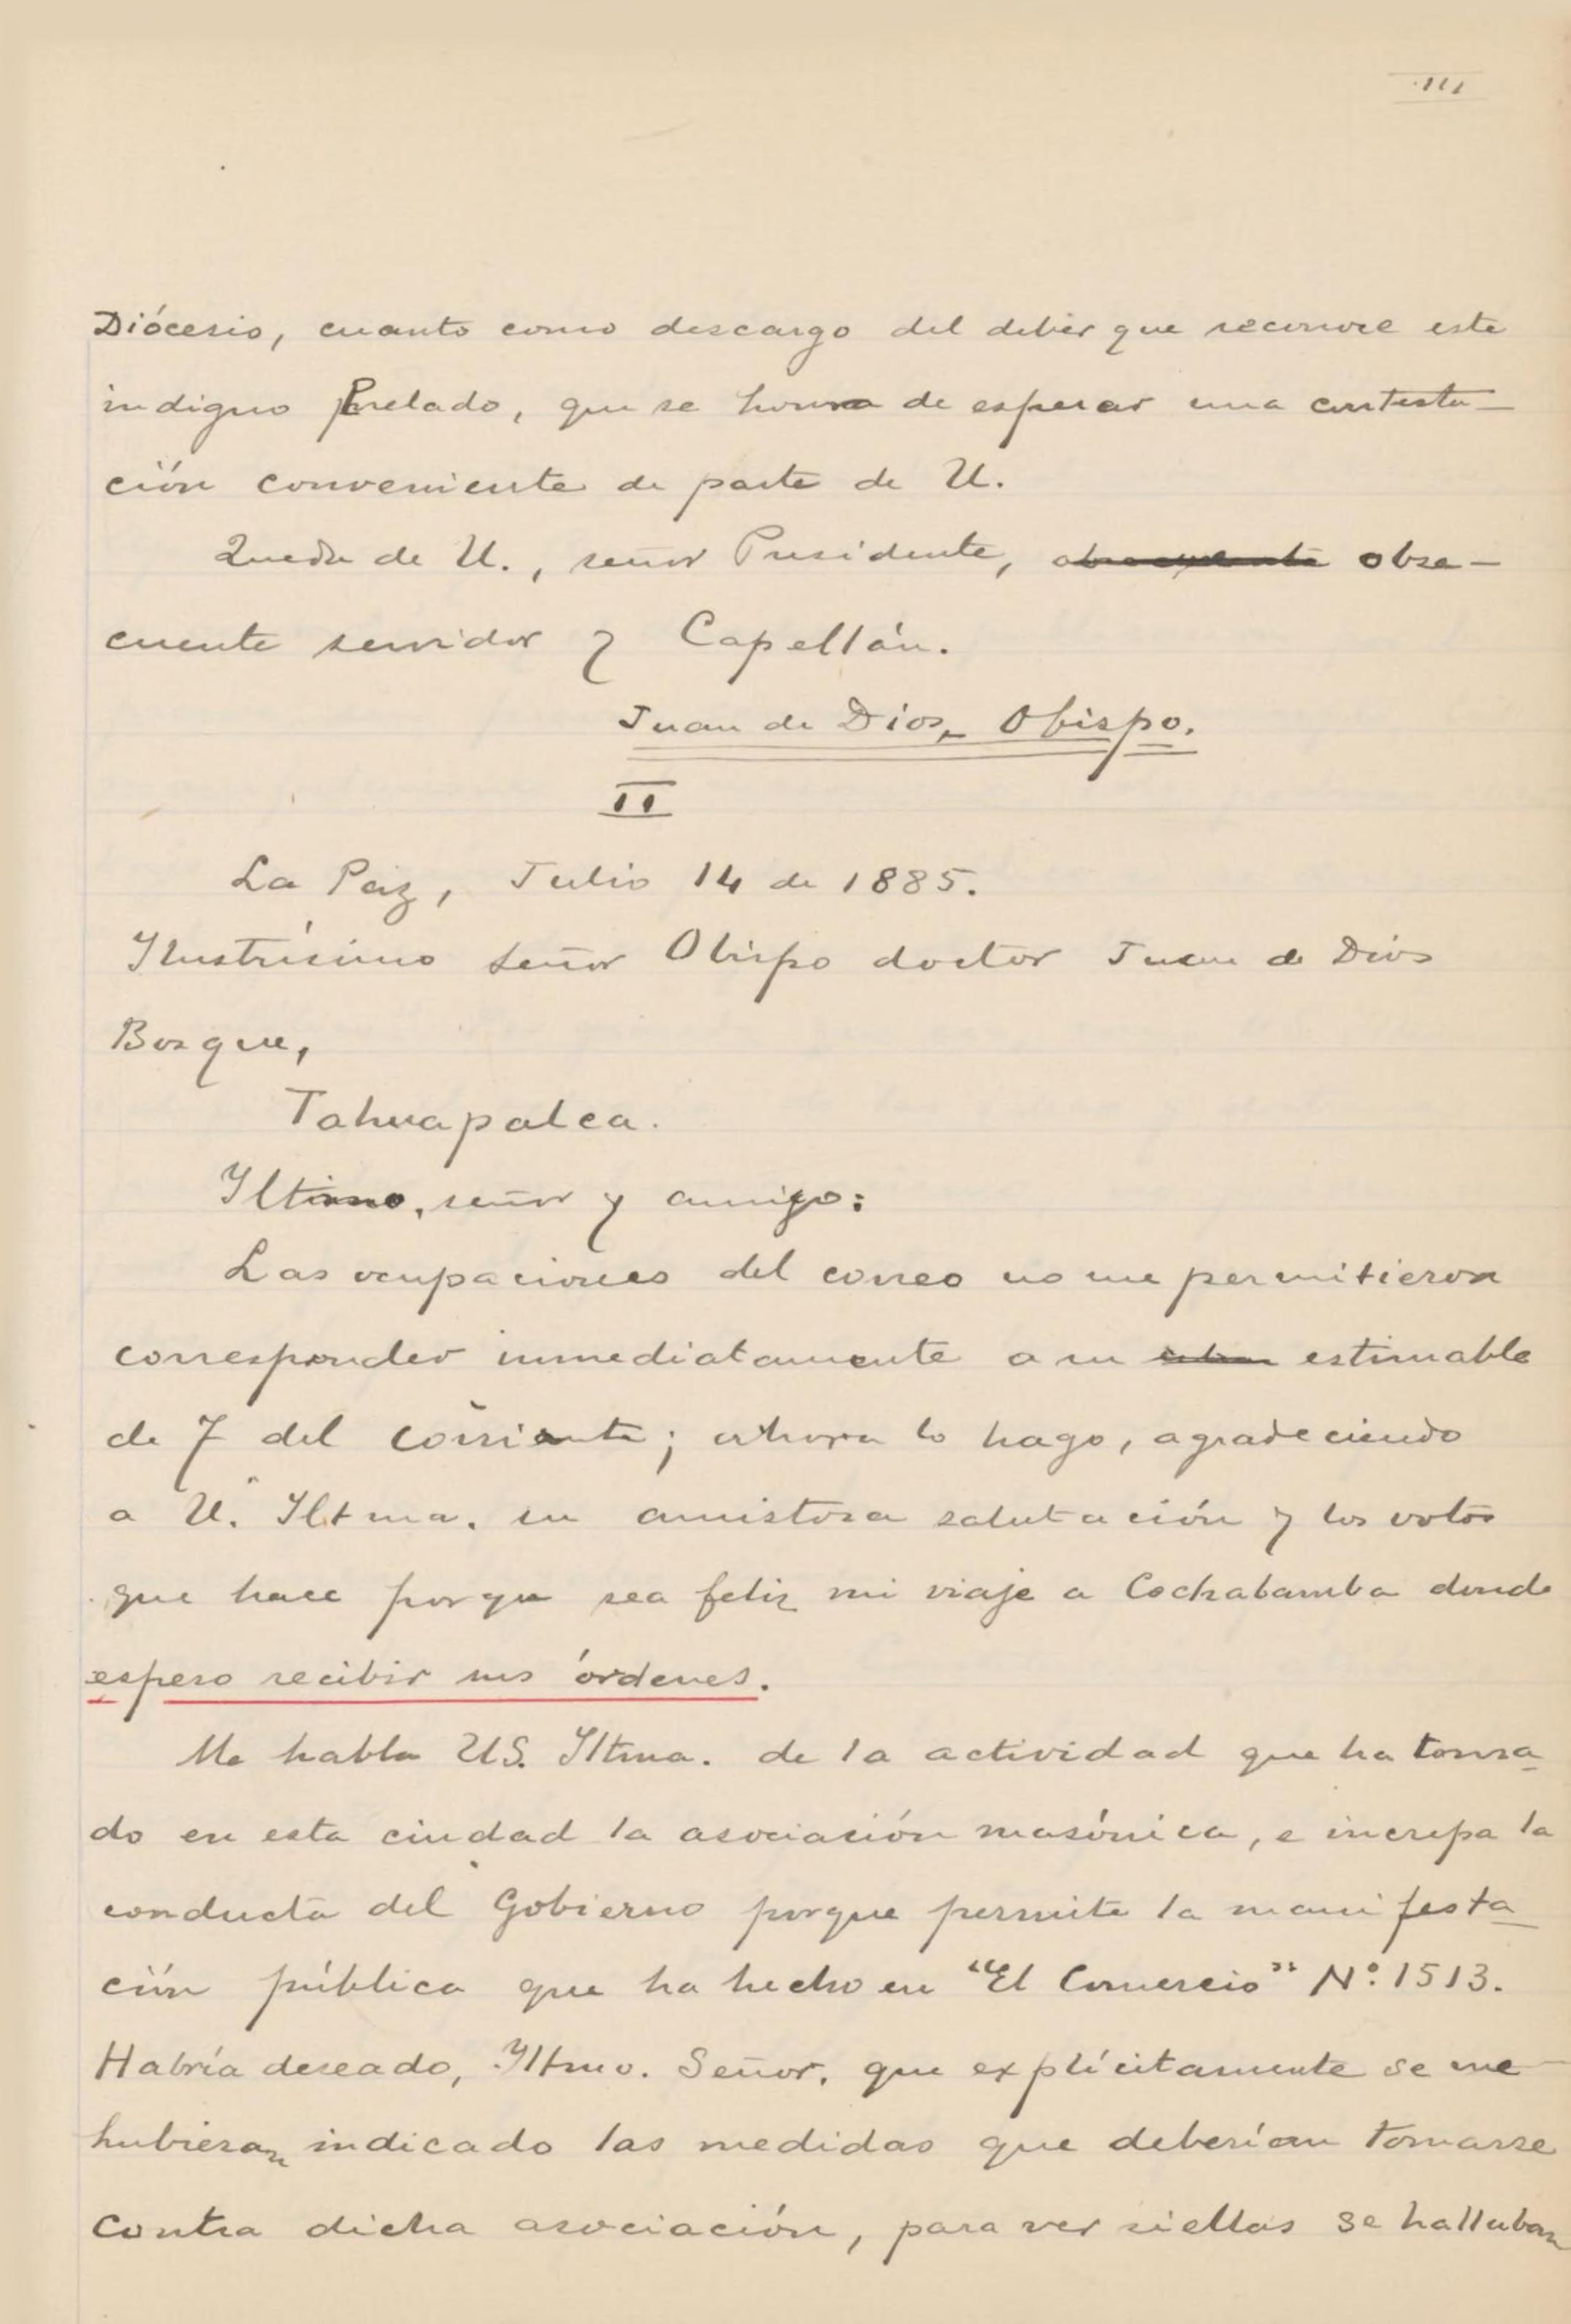 111
Diócesis, cuanto como descargo del deber que reconoce este
indigno Prelado, que se honra de esperar una contesta-
ción conveniente de parte de U.
Queda de U., señor Presidente, obse-
cuente servidor y Capellán.
Juan de Dios, Obispo.
II
La Paz, Julio 14 de 1885.
Ilustrísimo señor Obispo doctor Juan de Dios
Bosque,
Tahuapalca.
Iltimo, señor y amigo:
Las ocupaciones del correo no me permitieron
corresponder inmediatamente a su estimable
de 7 del corriente; ahora lo hago, agradeciendo
a U. Iltma. su amistosa salutación y los votos
que hace porque sea feliz mi viaje a Cochabamba donde
espero recibir sus órdenes.
Me habla US. Iltma. de la actividad que ha toma-
do en esta ciudad la asociación masónica, e increpa la
conducta del Gobierno porque permite la manifesta-
ción pública que ha hecho en "El Comercio" Nº 1513.
Habría deseado, Iltmo. Señor, que explícitamente se me
hubieran indicado las medidas que deberían tomarse
contra dicha asociación, para ver si ellas se hallaban